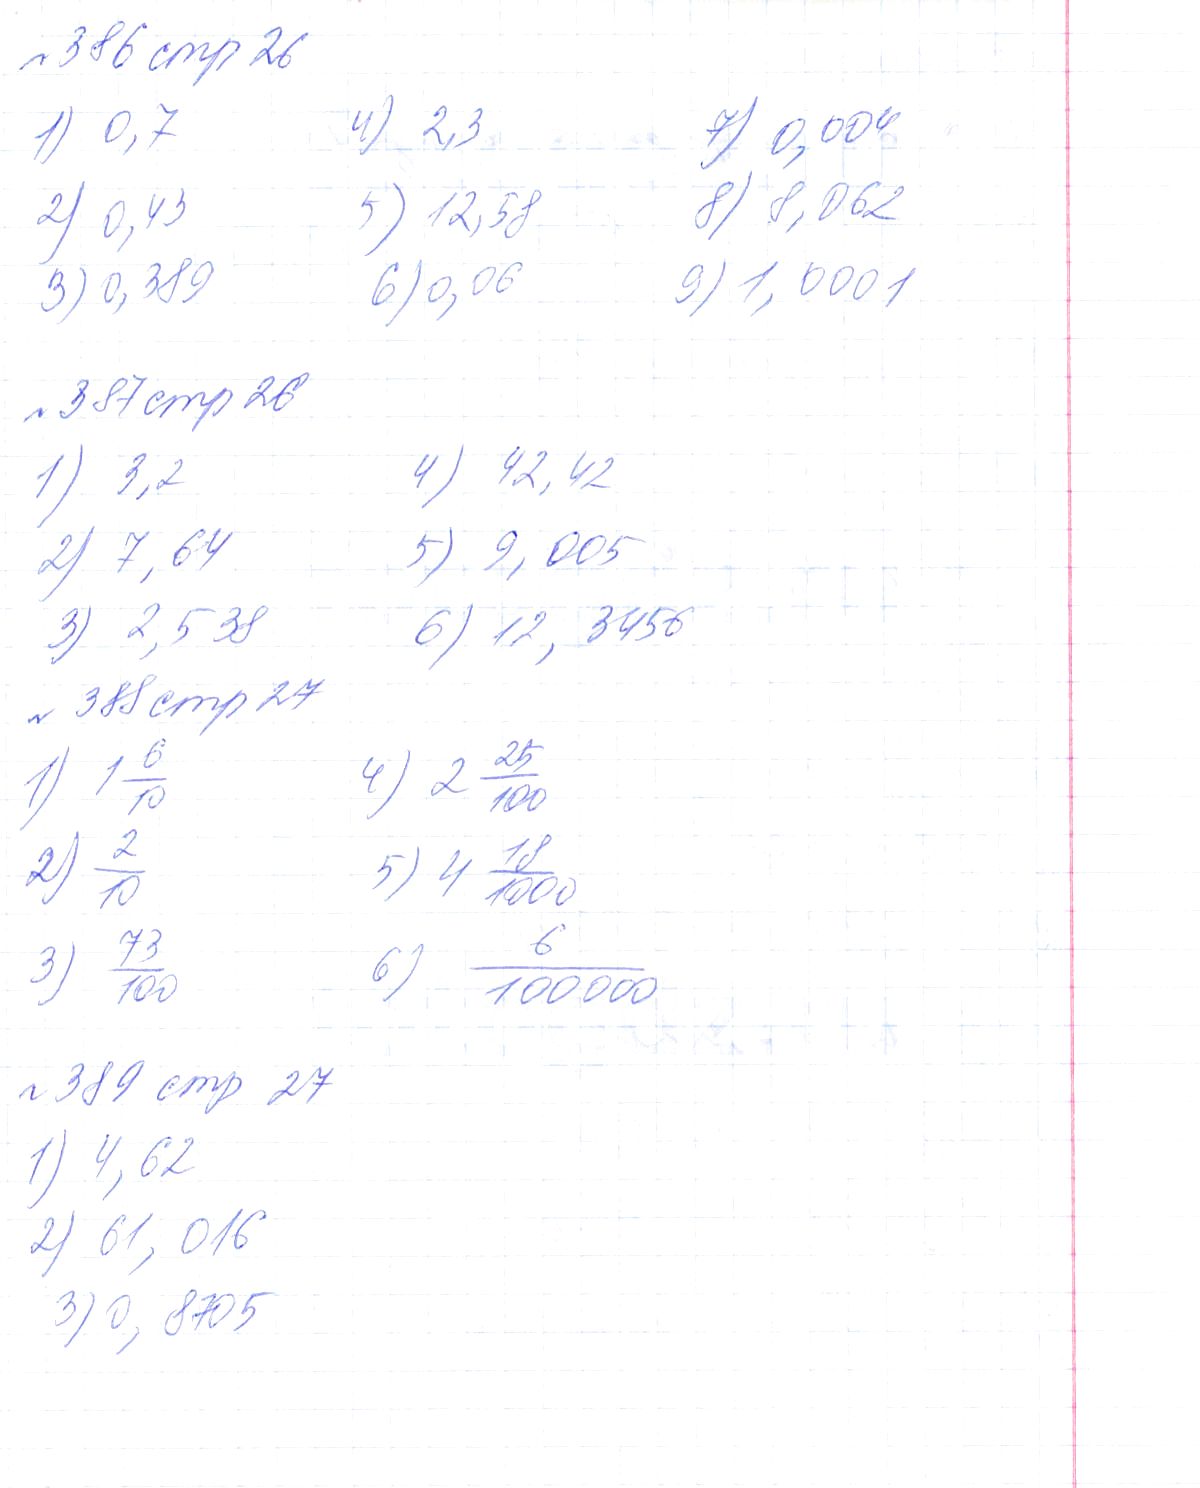 №386 стр 26
1) 0,7 4) 2,3 7) 0,004
2) 0,43 5) 12,58 8) 8,062
3) 0,389 6) 0,06 9) 1,0001
№387 стр 26
1) 3,2 4) 42,42
2) 7,64 5) 9,005
3) 2,538 6) 12,3456
№388 стр 27
1) 1 6/10 4) 2 25/100
2) 2/10 5) 4 18/1000
3) 73/100 6) 6/100000
№389 стр 27
1) 4,62
2) 61,016
3) 0,8705